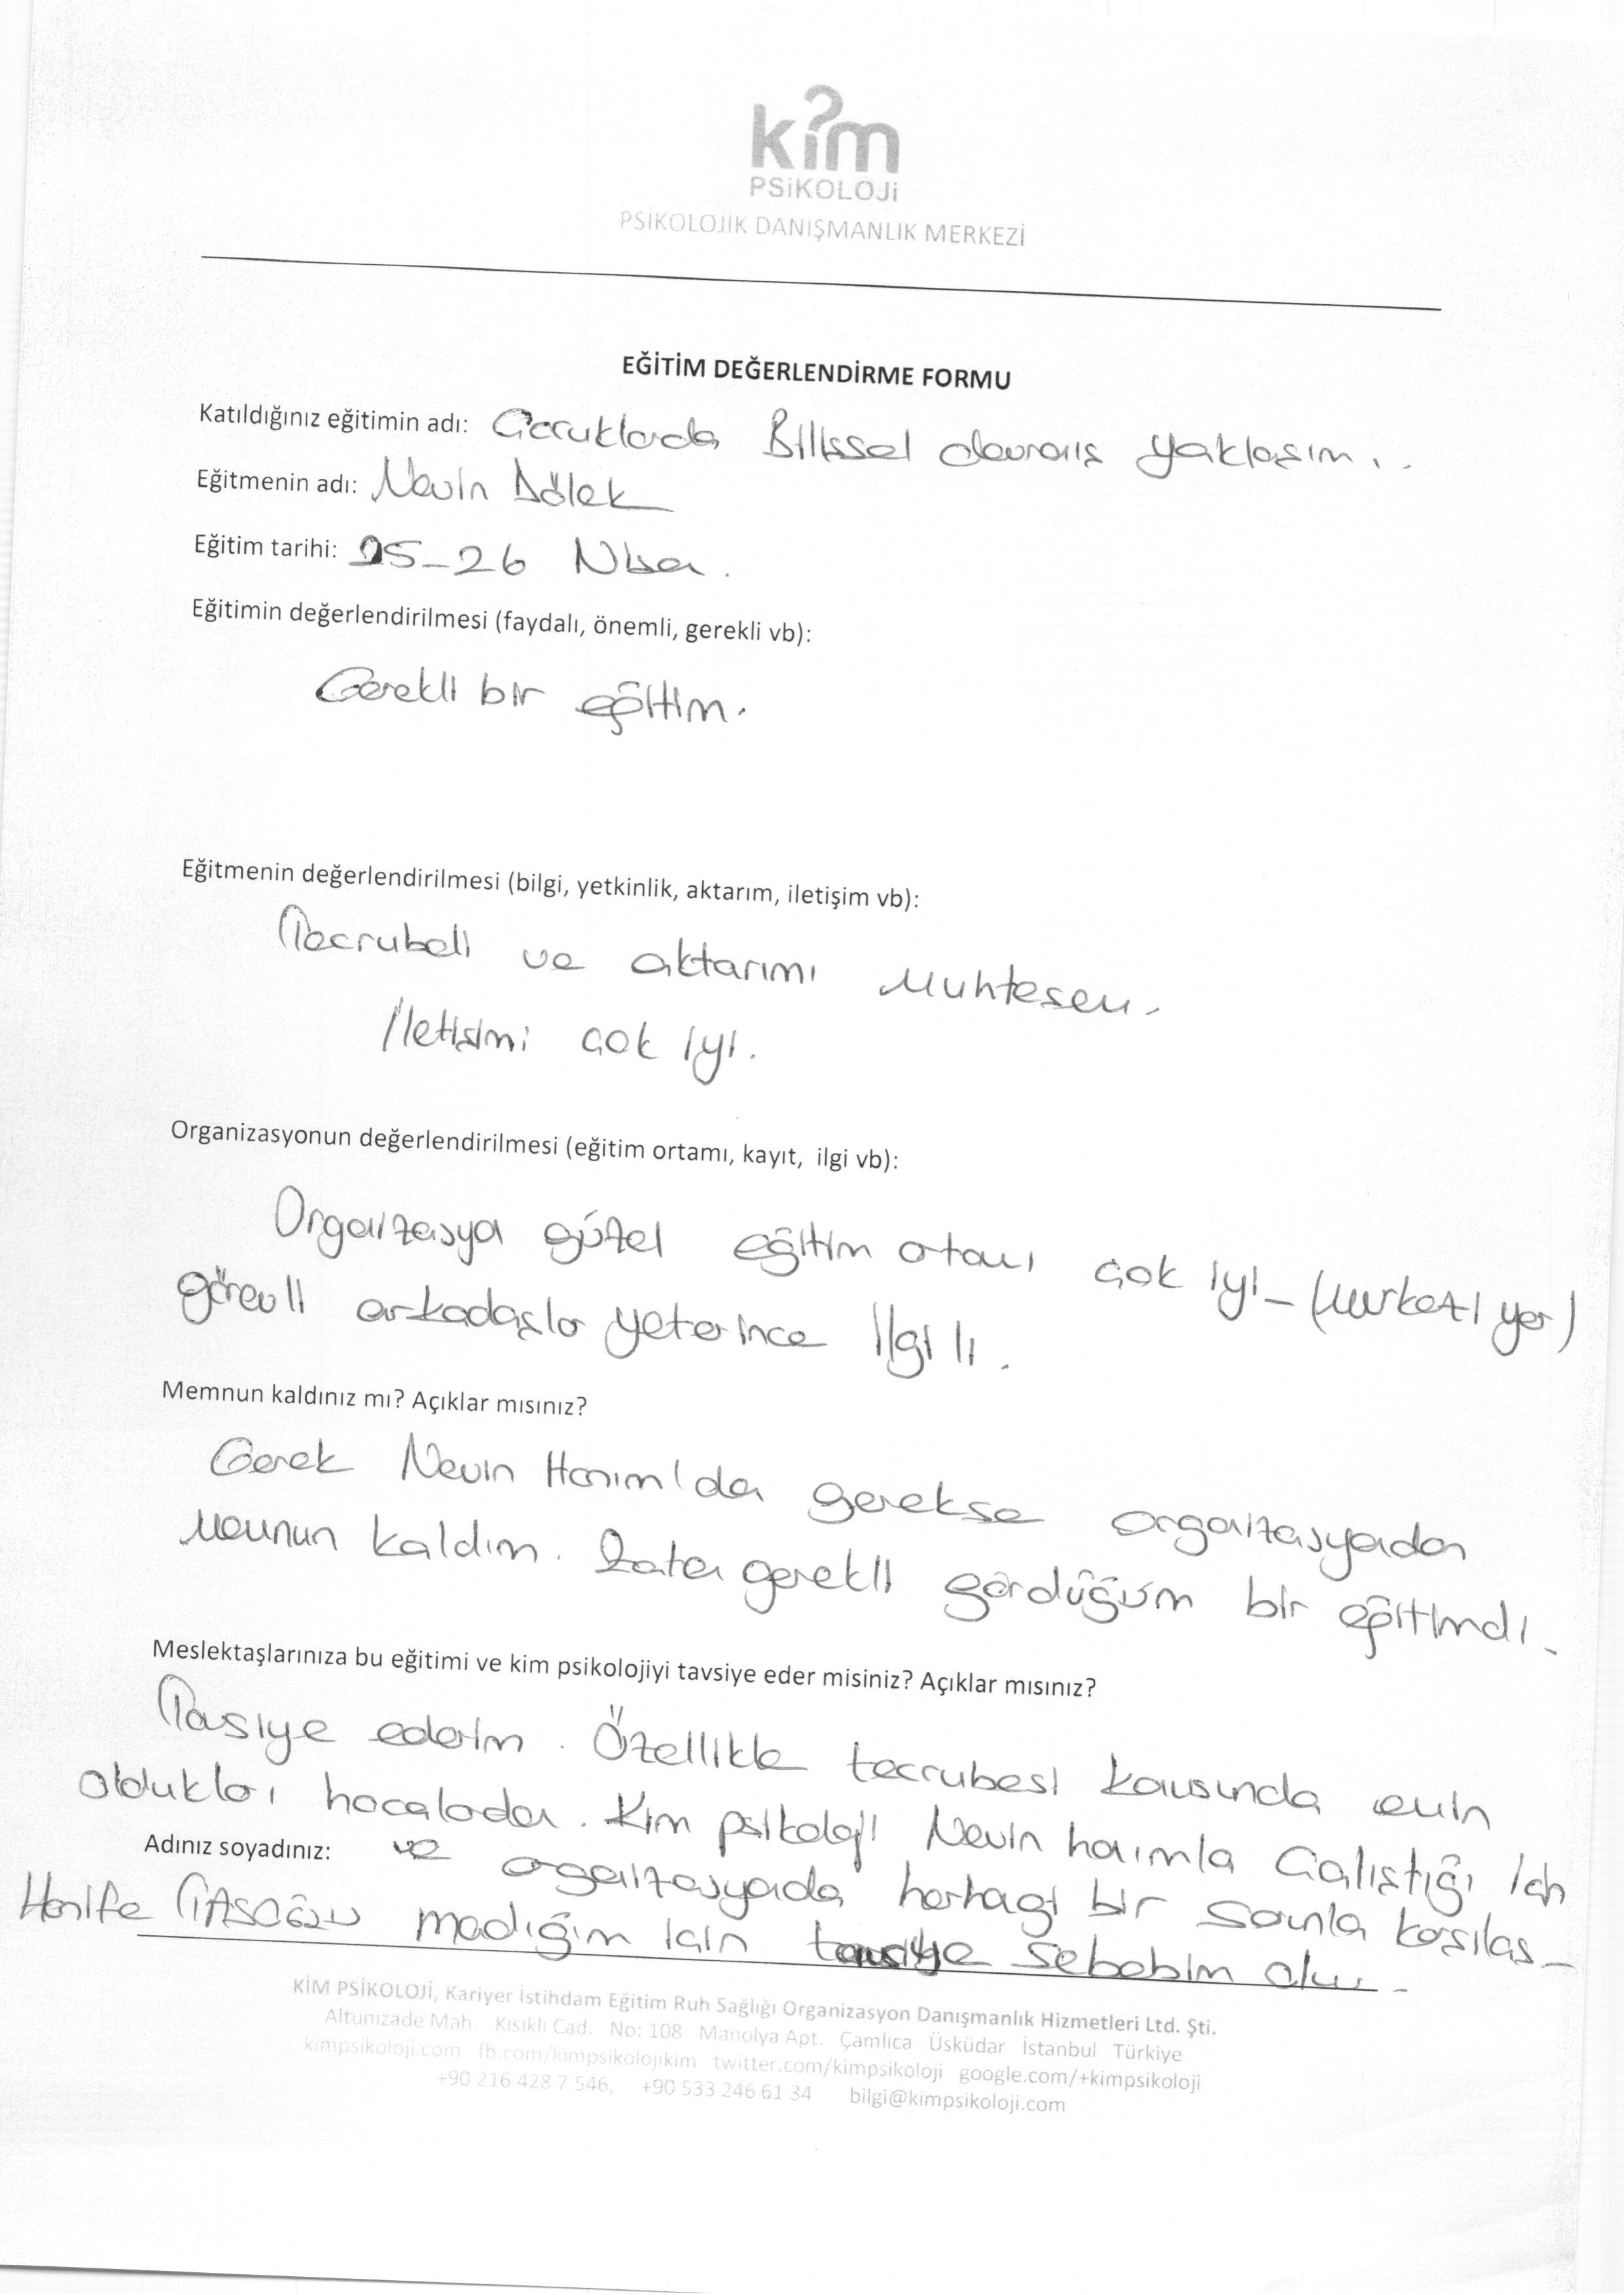 kim
PSiKOLOJi
PSİKOLOJİK DANIŞMANLIK MERKEZİ
EĞİTİM DEĞERLENDİRME FORMU
Katıldığınız eğitimin adı: Çocuklarda Bilişsel davranış yaklaşım..
Eğitmenin adı: Nevin Dölek
Eğitim tarihi: 25-26 Nisan.
Eğitimin değerlendirilmesi (faydalı, önemli, gerekli vb):
Gerekli bir eğitim.
Eğitmenin değerlendirilmesi (bilgi, yetkinlik, aktarım, iletişim vb):
Tecrubeli ve aktarımı Muhteşem.
İletişimi çok iyi.
Organizasyonun değerlendirilmesi (eğitim ortamı, kayıt, ilgi vb):
Organizasyon güzel eğitim ortamı çok iyi- (merkezi yer)
görevli arkadaşlar yeterince ilgili.
Memnun kaldınız mı? Açıklar mısınız?
Gerek Nevin Hanım'dan gerekse organizasyondan
memnun kaldım. Zaten gerekli gördüğüm bir eğitimdi.
Meslektaşlarınıza bu eğitimi ve kim psikolojiyi tavsiye eder misiniz? Açıklar mısınız?
Tavsiye ederim. Özellikle tecrubesi konusunda emin
oldukları hocalardan. Kim psikoloji Nevin hanımla çalıştığı için
Adınız soyadınız: ve organizasyonda herhangi bir sorunla karşılaş-
Hanife TAŞOĞLU madığım için tavsiye sebebim olur.
KİM PSİKOLOJİ, Kariyer İstihdam Eğitim Ruh Sağlığı Organizasyon Danışmanlık Hizmetleri Ltd. Şti.
Altunizade Mah. Kısıklı Cad. No: 108 Manolya Apt. Çamlıca Üsküdar İstanbul Türkiye
kimpsikoloji.com fb.com/kimpsikolojikim twitter.com/kimpsikoloji google.com/+kimpsikoloji
+90 216 428 7 546, +90 533 246 61 34 bilgi@kimpsikoloji.com